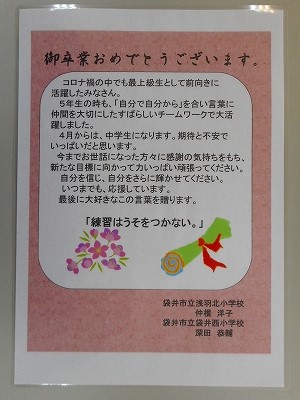 御卒業おめでとうございます。
コロナ禍の中でも最上級生として前向きに
活躍したみなさん。
５年生の時も、「自分で自分から」を合い言葉に
仲間を大切にしたすばらしいチームワークで大活
躍しました。
４月からは、中学生になります。期待と不安で
いっぱいだと思います。
今までお世話になった方々に感謝の気持ちをもち、
新たな目標に向かって力いっぱい頑張ってください。
自分を信じ、自分をさらに輝かせてください。
いつまでも、応援しています。
最後に大好きなこの言葉を贈ります。
「練習はうそをつかない。」
袋井市立浅羽北小学校
仲横 洋子
袋井市立袋井西小学校
深田 恭輔